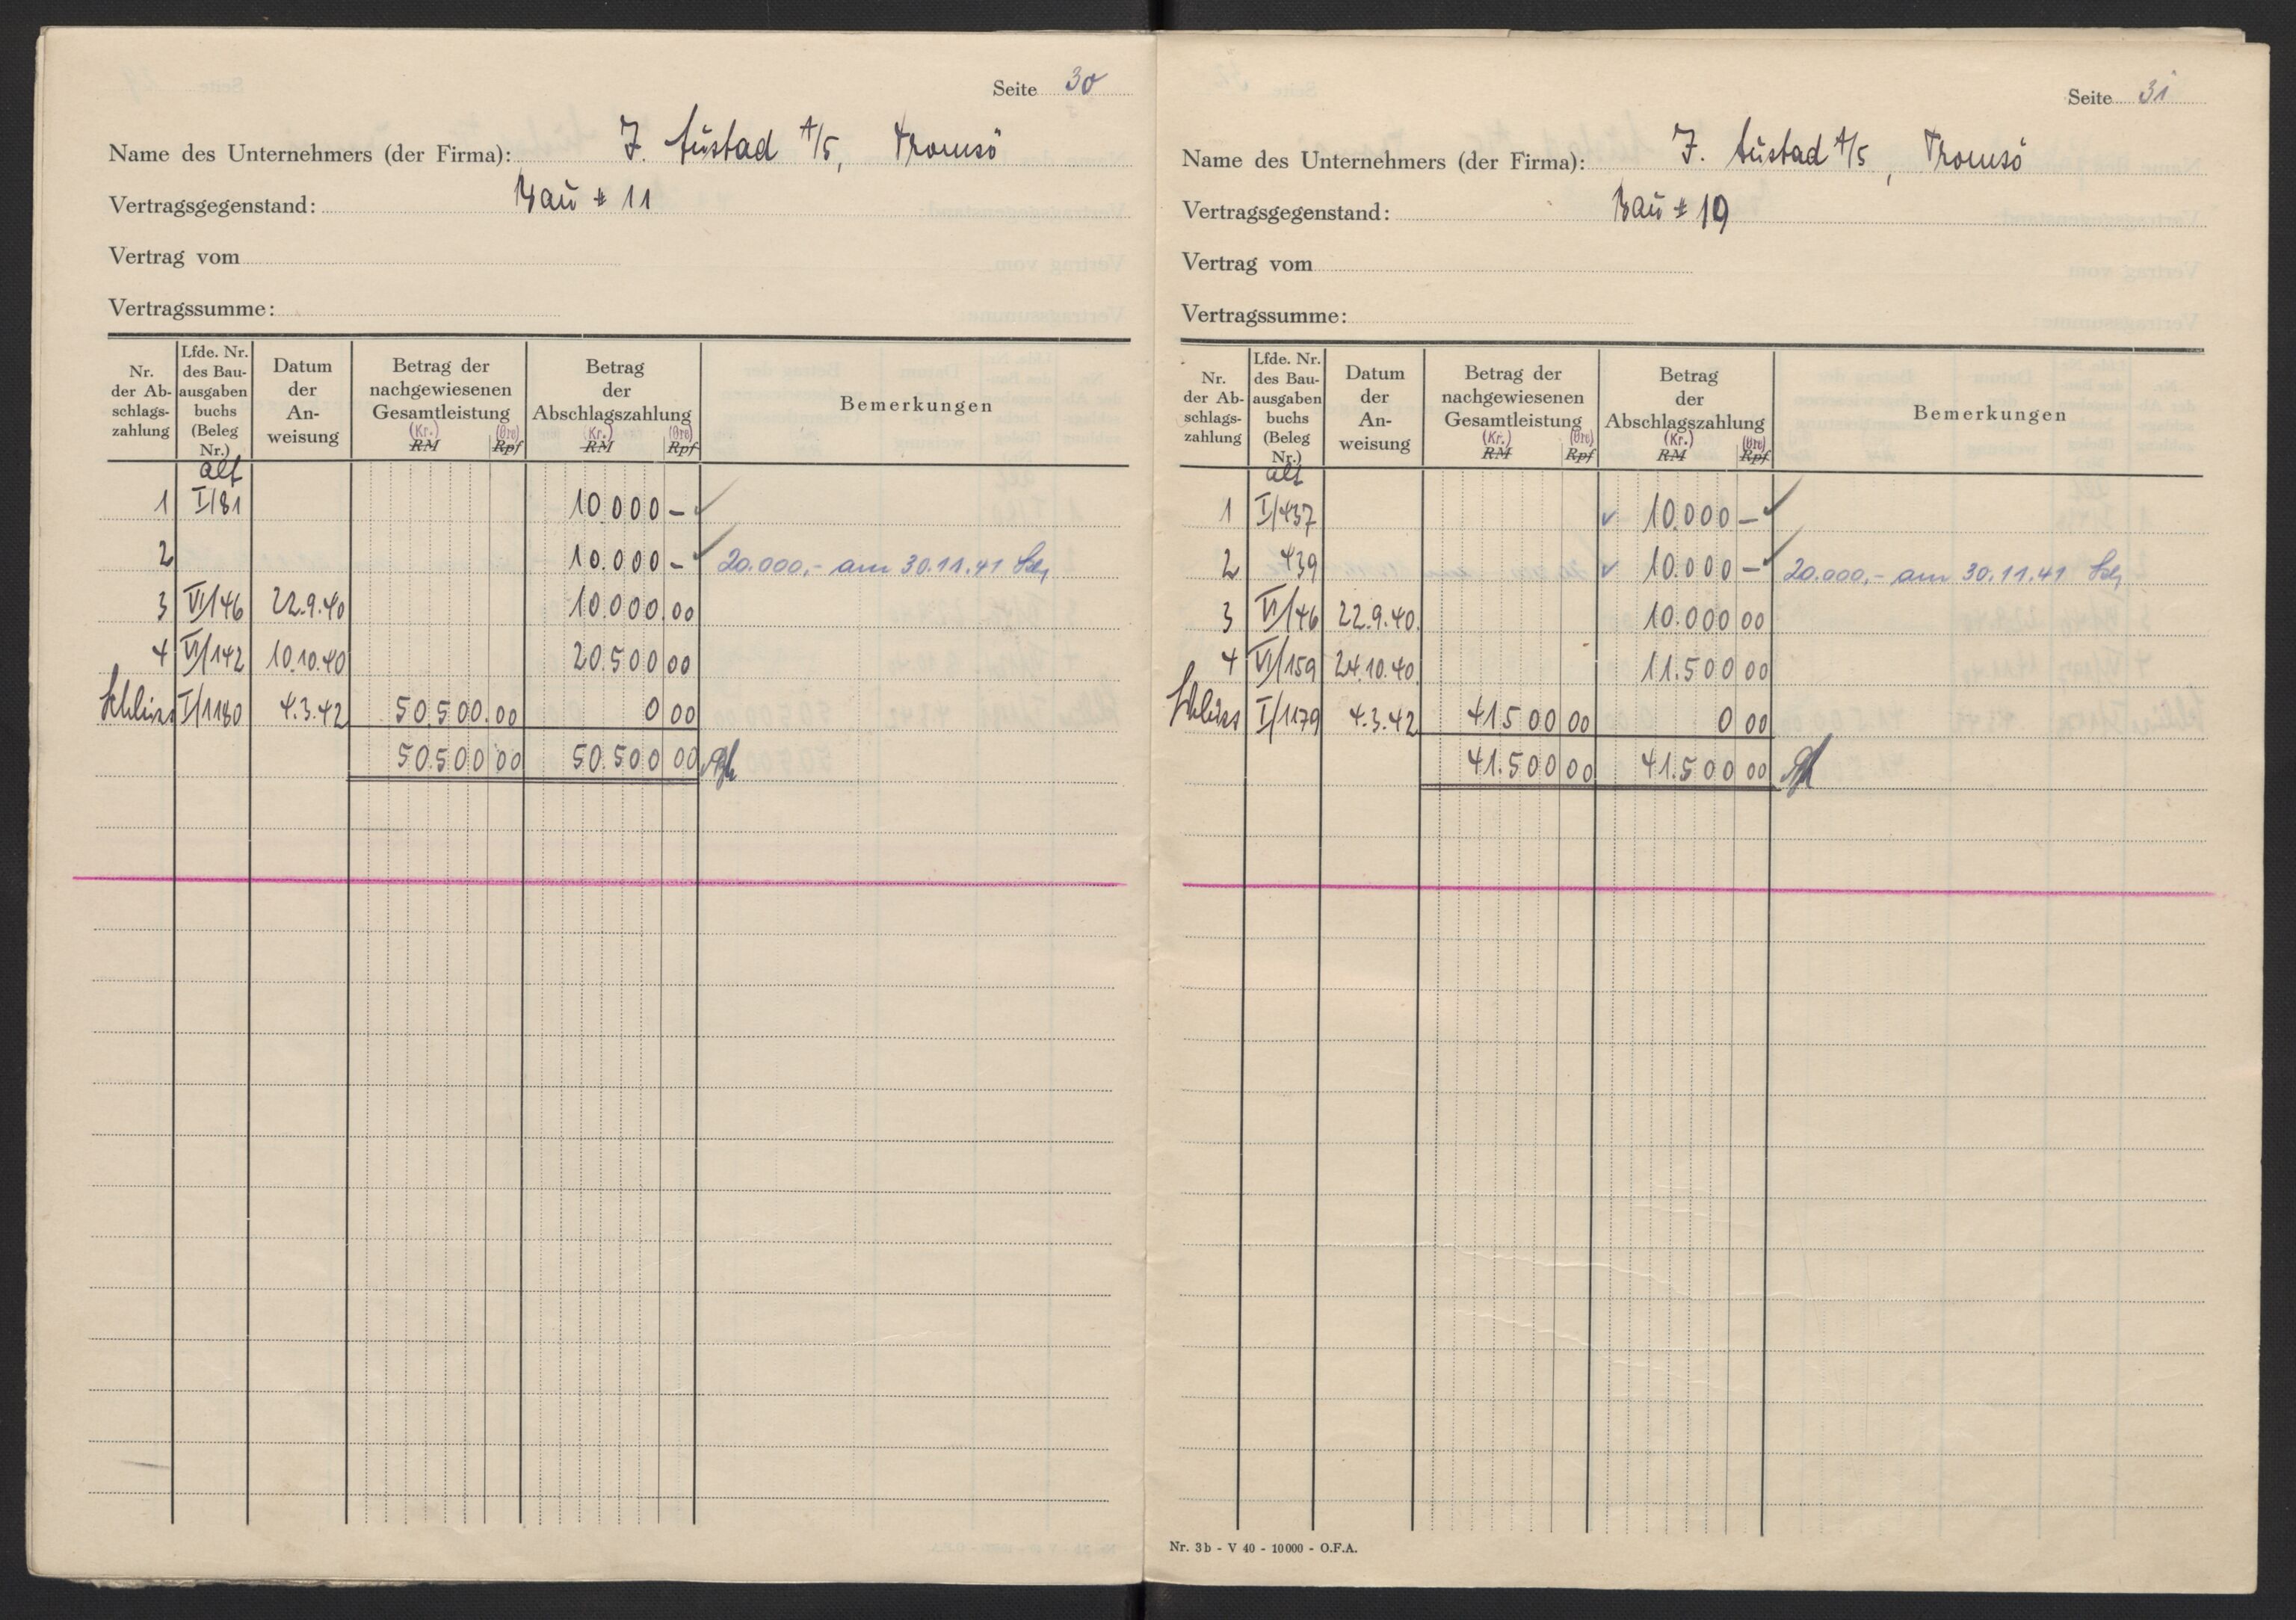 Seite 30
Name des Unternehmers (der Firma): J. Aŭstad A/S, Tromsö
Vertragsgegenstand: Baŭ # 11
Vertrag vom
Vertragssumme:
Nr. der Ab-schlags-zahlung | Lfde. Nr. des Bau-ausgaben buchs (Beleg Nr.) | Datum der An-weisung | Betrag der nachgewiesenen Gesamtleistung (Kr.) RM (Øre) Rpf | Betrag der Abschlagszahlung (Kr.) RM (Øre) Rpf | Bemerkungen
alt
1 I/81 10.000 –
2 10.000 – 20.000,- am 30.11.41
3 VI/46 22.9.40 10.000.00
4 VI/142 10.10.40 20.500 00
Schlŭss I/1180 4.3.42 50.500.00 0 00
50.500 00 50.500 00
Seite 31
Name des Unternehmers (der Firma): J. Aŭstad A/S, Tromsö
Vertragsgegenstand: Baŭ # 19
Vertrag vom
Vertragssumme:
Nr. der Ab-schlags-zahlung | Lfde. Nr. des Bau-ausgaben buchs (Beleg Nr.) | Datum der An-weisung | Betrag der nachgewiesenen Gesamtleistung (Kr.) RM (Øre) Rpf | Betrag der Abschlagszahlung (Kr.) RM (Øre) Rpf | Bemerkungen
alt
1 I/437 10.000 –
2 439 10.000 – 20.000,- am 30.11.41
3 VI/46 22.9.40. 10.000 00
4 VI/159 24.10.40. 11.500 00
Schlŭss I/1179 4.3.42 41.500 00 0 00
41.500 00 41.500 00
Nr. 3b - V 40 - 10000 - O.F.A.